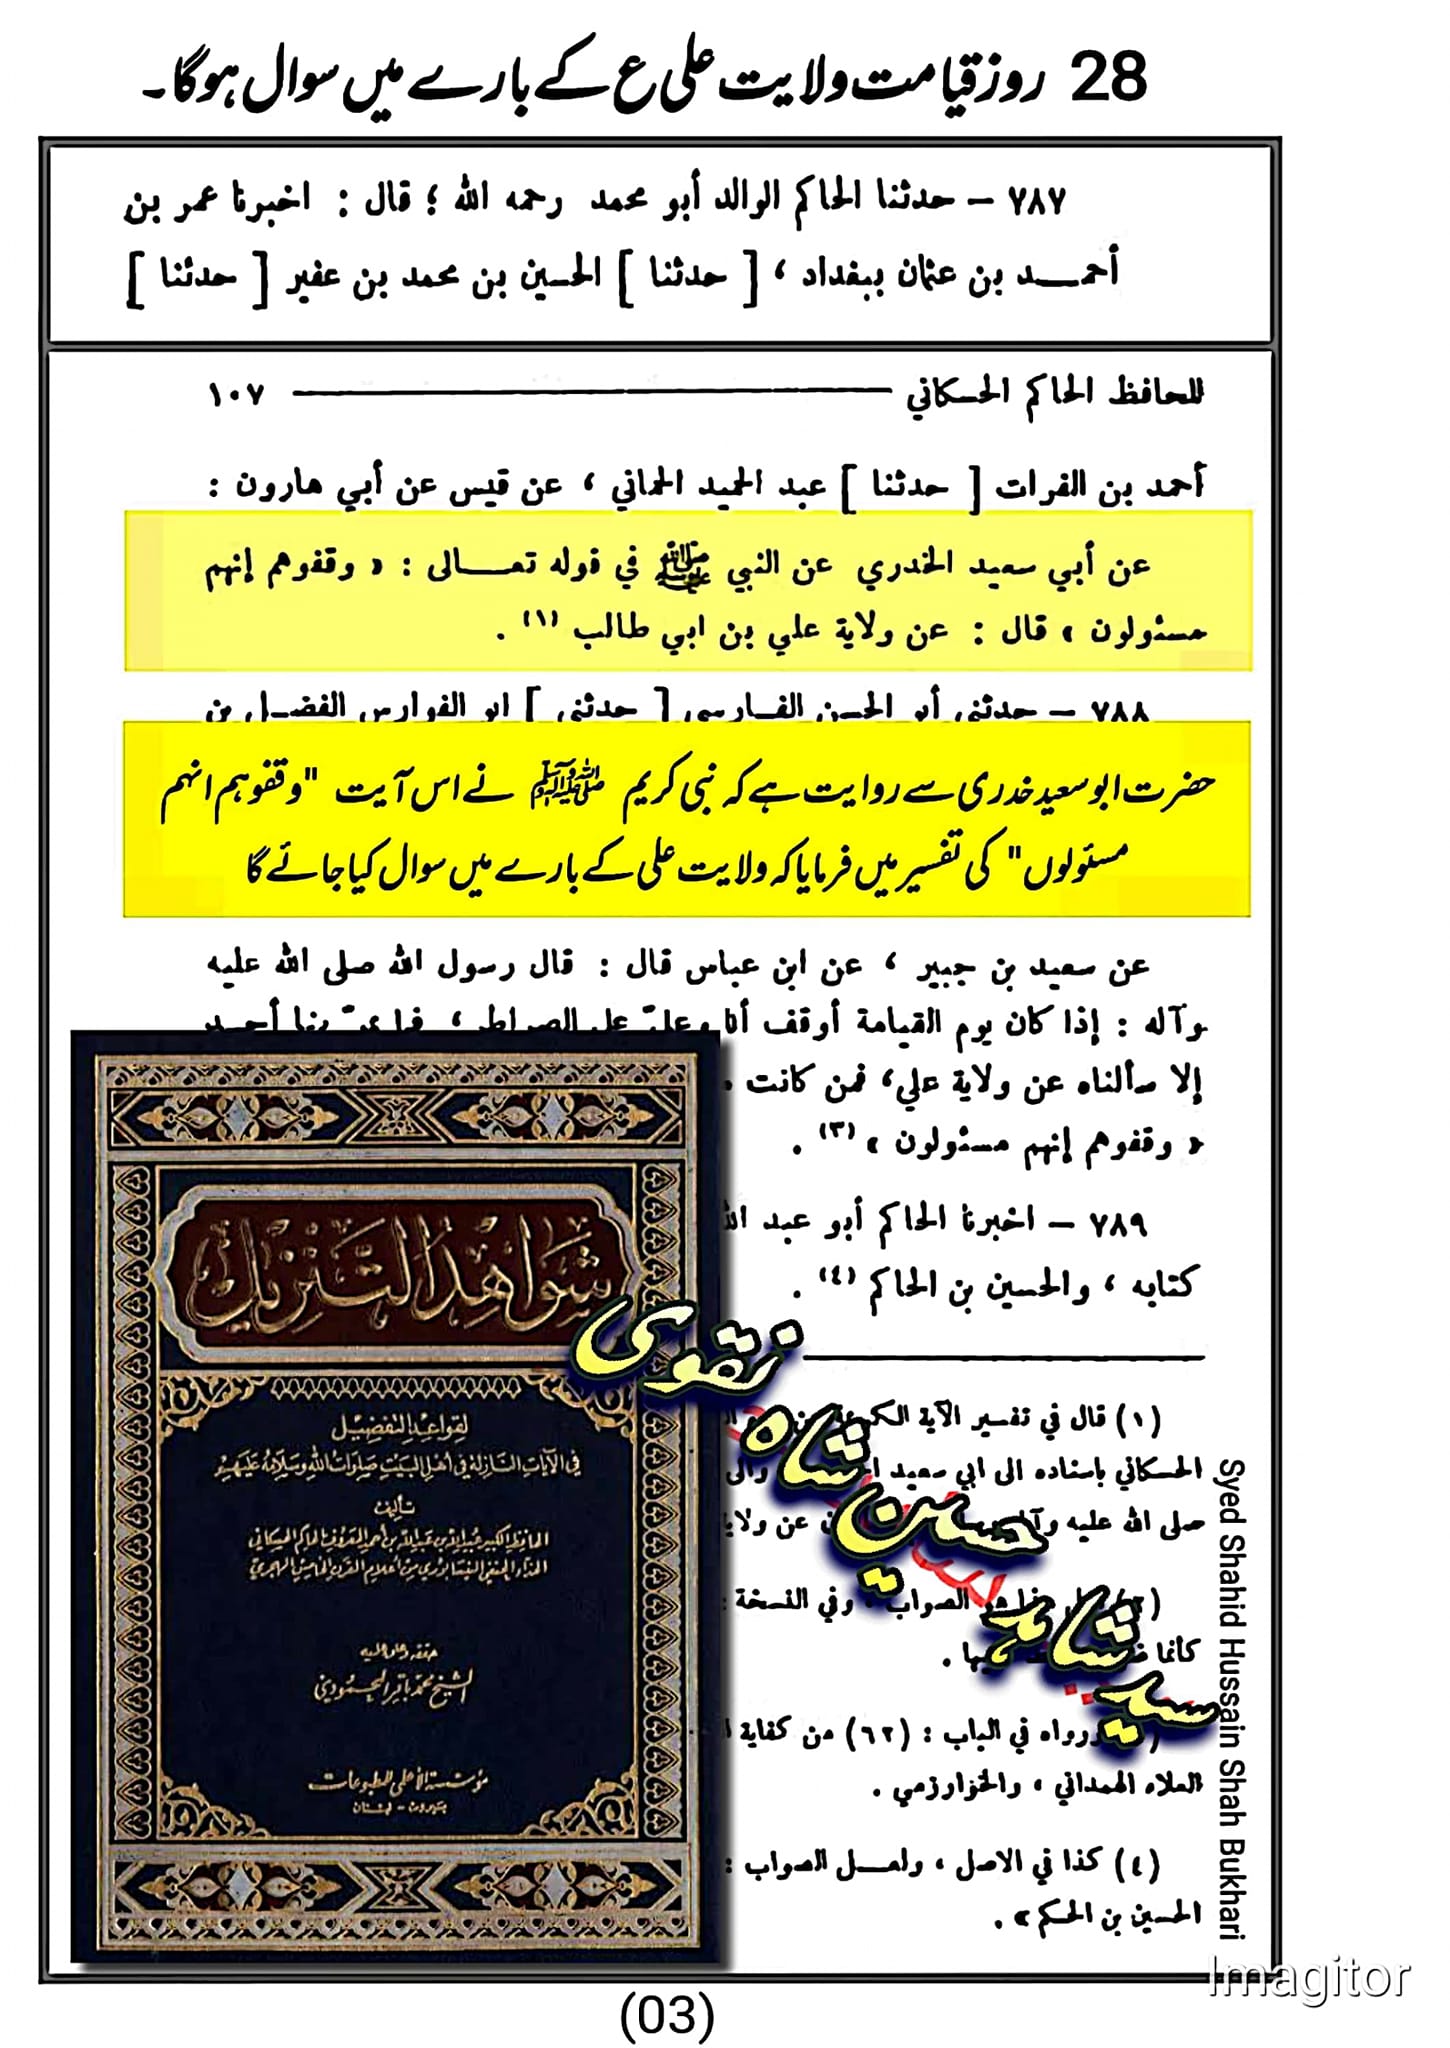 28 روز قیامت ولایت علی ع کے بارے میں سوال ہوگا۔
٧٨٧ – حدثنا الحاكم الوالد أبو محمد رحمه الله ؛ قال : اخبرنا عمر بن
أحمد بن عثمان ببغداد ، [ حدثنا ] الحسين بن محمد بن عفير [ حدثنا ]
للحافظ الحاكم الحسكاني ١٠٧
أحمد بن الفرات [ حدثنا ] عبد الحميد الحماني ، عن قيس عن أبي هارون :
عن أبي سعيد الخدري عن النبي ﷺ في قوله تعالى : « وقفوهم إنهم
مسئولون » قال : عن ولاية علي بن ابي طالب (١) .
٧٨٨ – حدثني أبو الحسن الفارسي [ حدثني ] ابو الفوارس الفضل بن
حضرت ابو سعید خدری سے روایت ہے کہ نبی کریم ﷺ نے اس آیت "وقفوہم انہم
مسئولوں" کی تفسیر میں فرمایا کہ ولایت علی کے بارے میں سوال کیا جائے گا
عن سعيد بن جبير ، عن ابن عباس قال : قال رسول الله صلى الله عليه
وآله : إذا كان يوم القيامة أوقف أنا وعليّ على الصراط ،
إلا سألناه عن ولاية علي، فمن كانت
« وقفوهم إنهم مسئولون » (٣) .
٧٨٩ – اخبرنا الحاكم أبو عبد
كتابه ، والحسين بن الحاكم (٤) .
(١) قال في تفسير الآية
الحسكاني باسناده الى ابي سعيد
صلى الله عليه عن
الصواب ، وفي النسخة :
كأنما
ورواه في الباب : (٦٢) من كفاية
العلاء الهمداني ، والخوارزمي .
(٤) كذا في الاصل ، ولعل الصواب :
الحسين بن الحكم» .
شواهد التنزيل
لقواعد التفضيل
في الآيات النازلة في أهل البيت صلوات الله وسلامه عليهم
تأليف
الحافظ الكبير عبيد الله بن عبد الله بن أحمد المعروف بالحاكم الحسكاني
الحذاء الحنفي النيسابوري من أعلام القرن الخامس الهجري
حققه وعلق عليه
الشيخ محمد باقر المحمودي
مؤسسة الأعلمي للمطبوعات
بيروت - لبنان
سید شاہد حسین شاہ نقوی
Syed Shahid Hussain Shah Bukhari
Imagitor
(03)